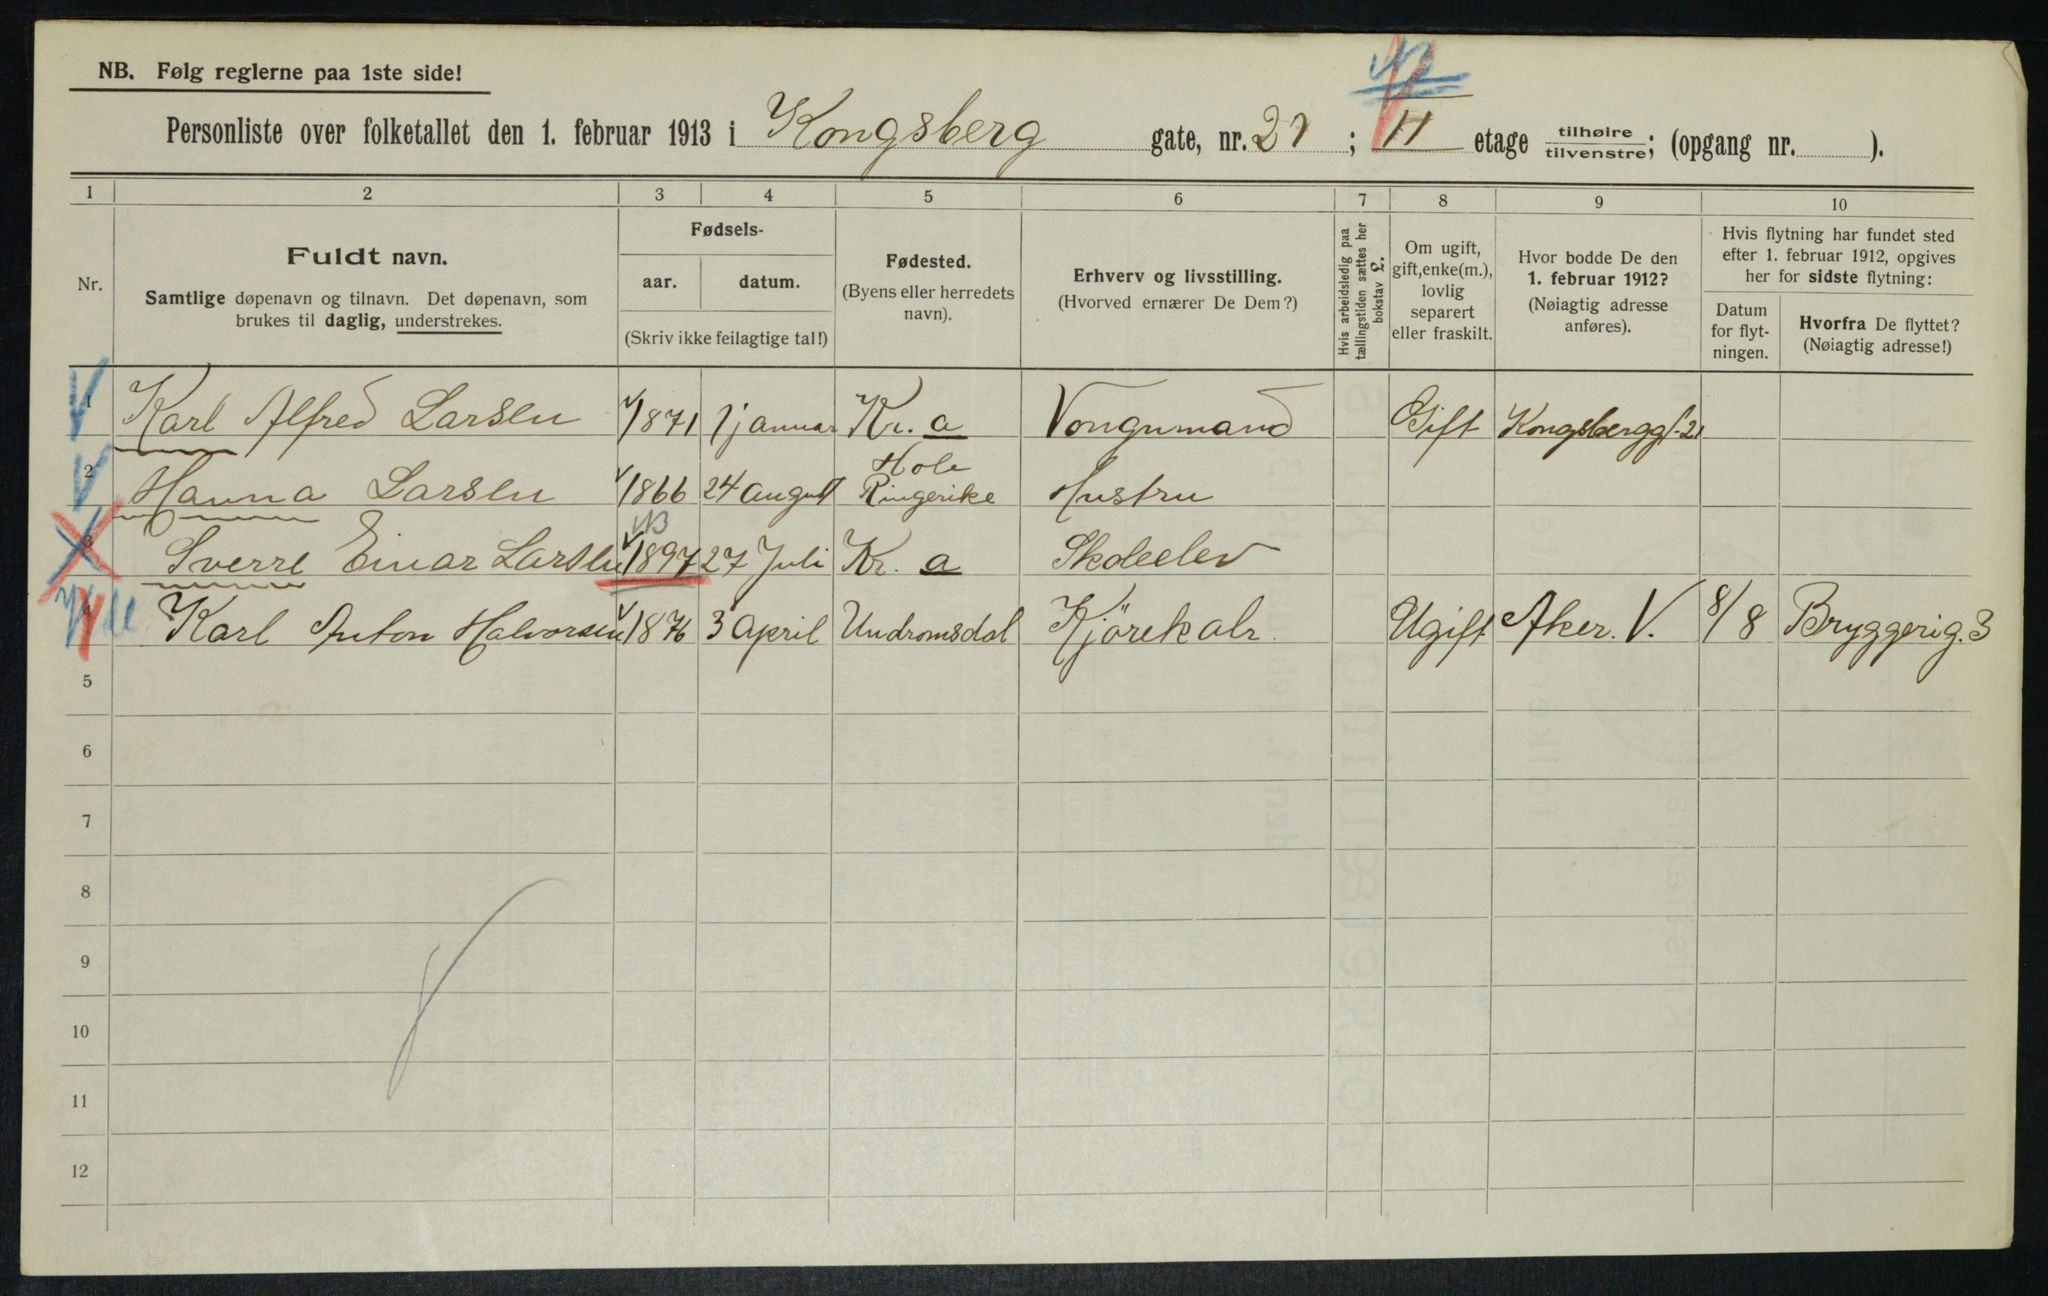 NB. Følg reglerne paa 1ste side!
Personliste over folketallet den 1. februar 1913 i Kongsberg gate, nr. 21; II etage tilhøire/tilvenstre; (opgang nr. ).
1 2 3 4 5 6 7 8 9 10
Nr.
Fuldt navn.
Samtlige døpenavn og tilnavn. Det døpenavn, som
brukes til daglig, understrekes.
Fødsels-
aar. datum.
(Skriv ikke feilagtige tal!)
Fødested.
(Byens eller herredets
navn).
Erhverv og livsstilling.
(Hvorved ernærer De Dem?)
Hvis arbeidsledig paa
tællingstiden sættes her
bokstav L.
Om ugift,
gift, enke(m.),
lovlig
separert
eller fraskilt.
Hvor bodde De den
1. februar 1912?
(Nøiagtig adresse
anføres).
Hvis flytning har fundet sted
efter 1. februar 1912, opgives
her for sidste flytning:
Datum
for flyt-
ningen.
Hvorfra De flyttet?
(Nøiagtig adresse!)
1 Karl Alfred Larsen 1871 1 januar Kr. a Vongnmand Gift Kongsbergg. 21
2 Hanna Larsen 1866 24 august Hole Ringerike Hustru
3 Sverre Einar Larsen 1897 27 Juli Kr. a Skoleelev
4 Karl Anton Halvorsen 1876 3 April Undromsdal Kjörekalr. Ugift Aker. V. 8/8 Bryggerig. 3
5
6
7
8
9
10
11
12